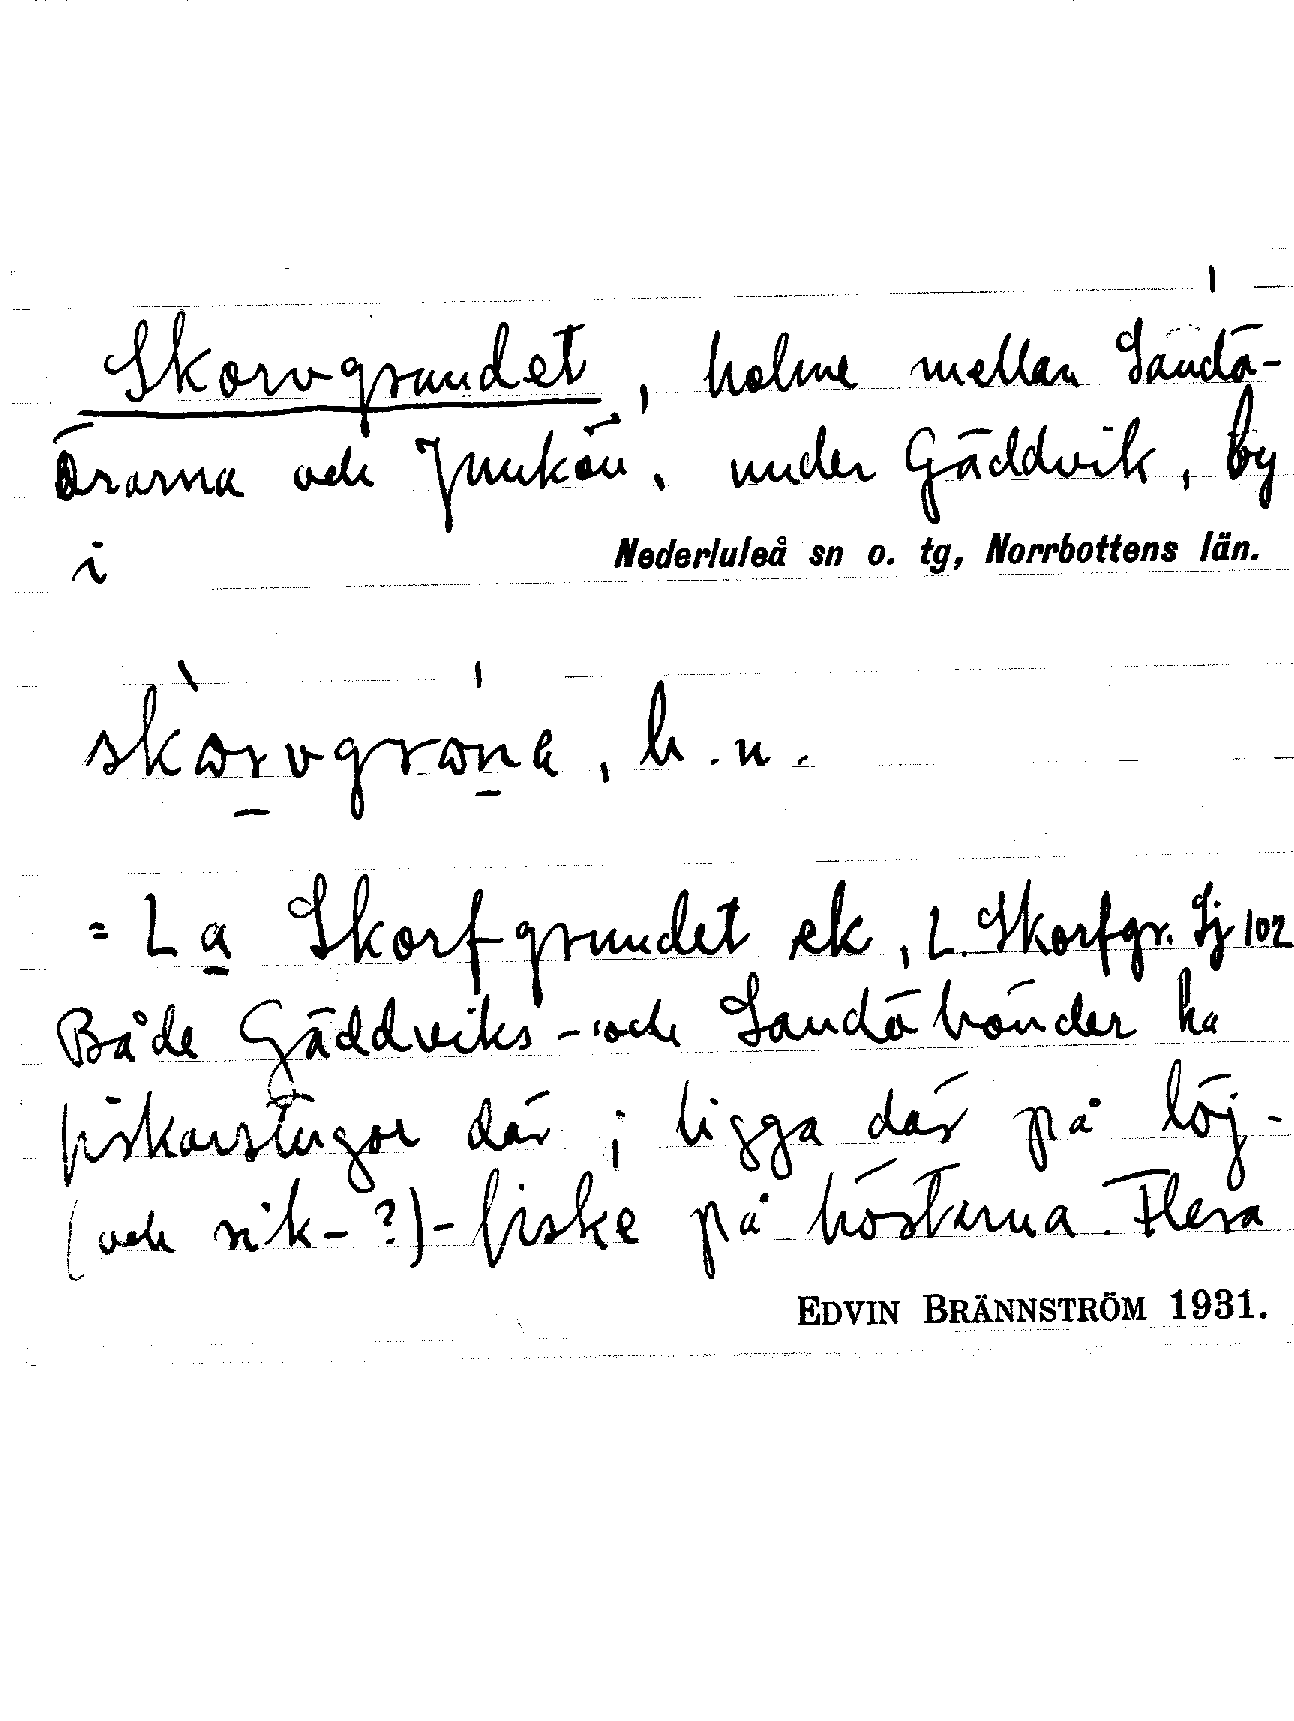 Skorvgrundet, holme mellan Sandö-
örarna och Junkön, under Gäddvik, by
i Nederluleå sn o. tg, Norrbottens län.
skòrvgróna, b.n.
= La Skorfgrundet ek, L. Skorfgr. Sj 102
Både Gäddviks- och Sandöbönder ha
fiskarstugor där; ligga där på löj-
(och sik-?)-fiske på höstarna. Flera
EDVIN BRÄNNSTRÖM 1931.